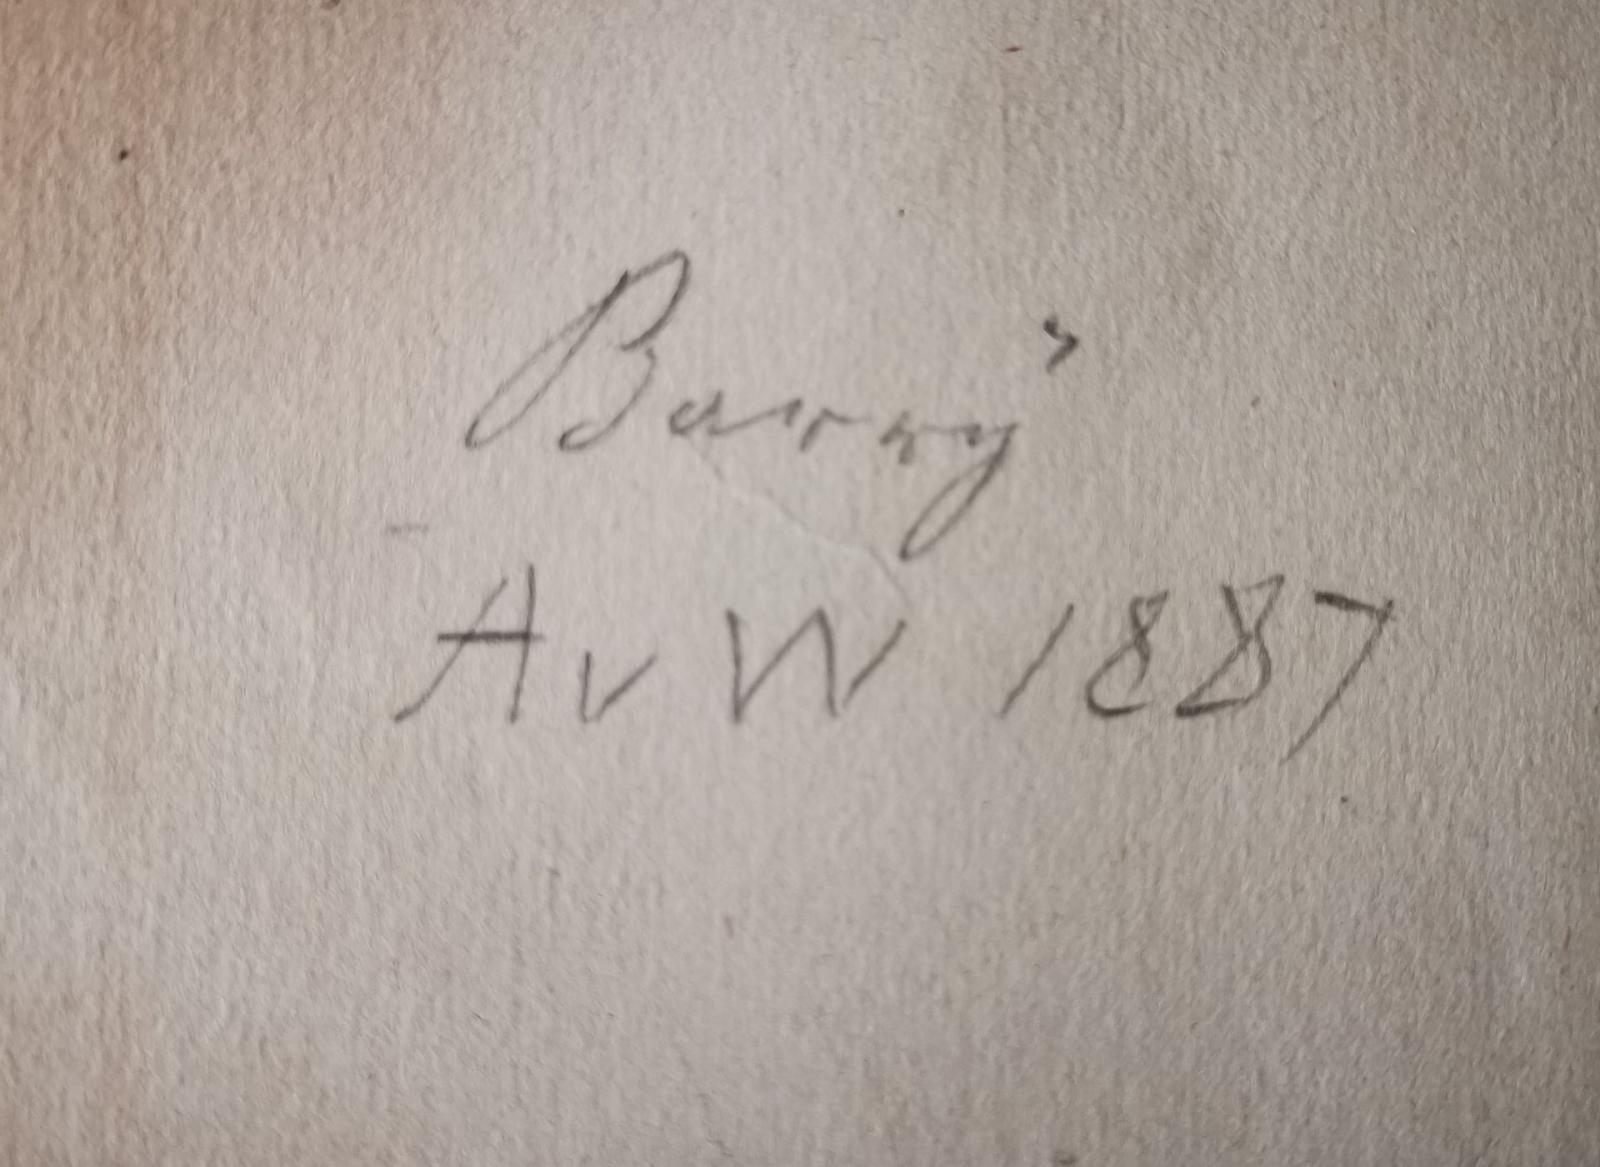 Barry
AvW 1887